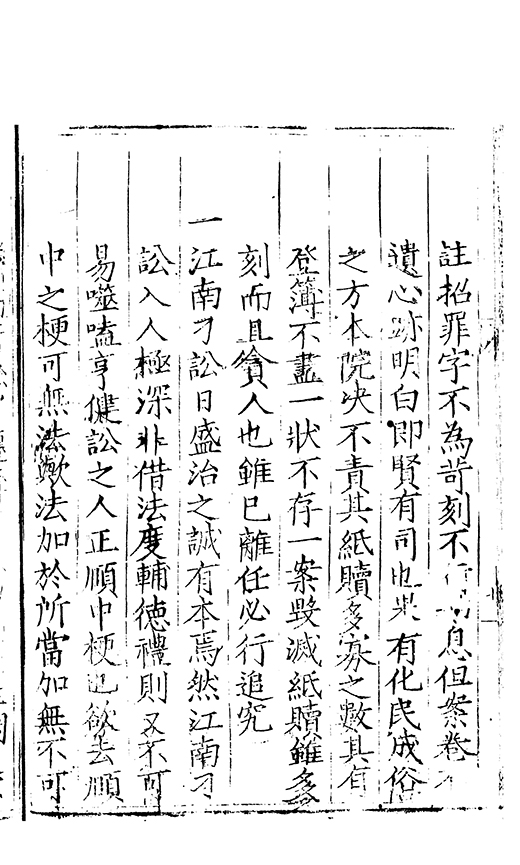 註招罪字不為苛刻不行息但案卷不
遺心跡明白即賢有司也果有化民成俗
之方本院决不責其紙贖多寡之數其有
登簿不盡一狀不存一案毀滅紙贖雖多
刻而且貪人也雖已離任必行追究
一江南刁訟日盛治之誠有本焉然江南刁
訟入人極深非借法度輔德禮則又不可
易噬嗑亨健訟之人正順中梗也欲去順
中之梗可無法歟法加於所當加無不可